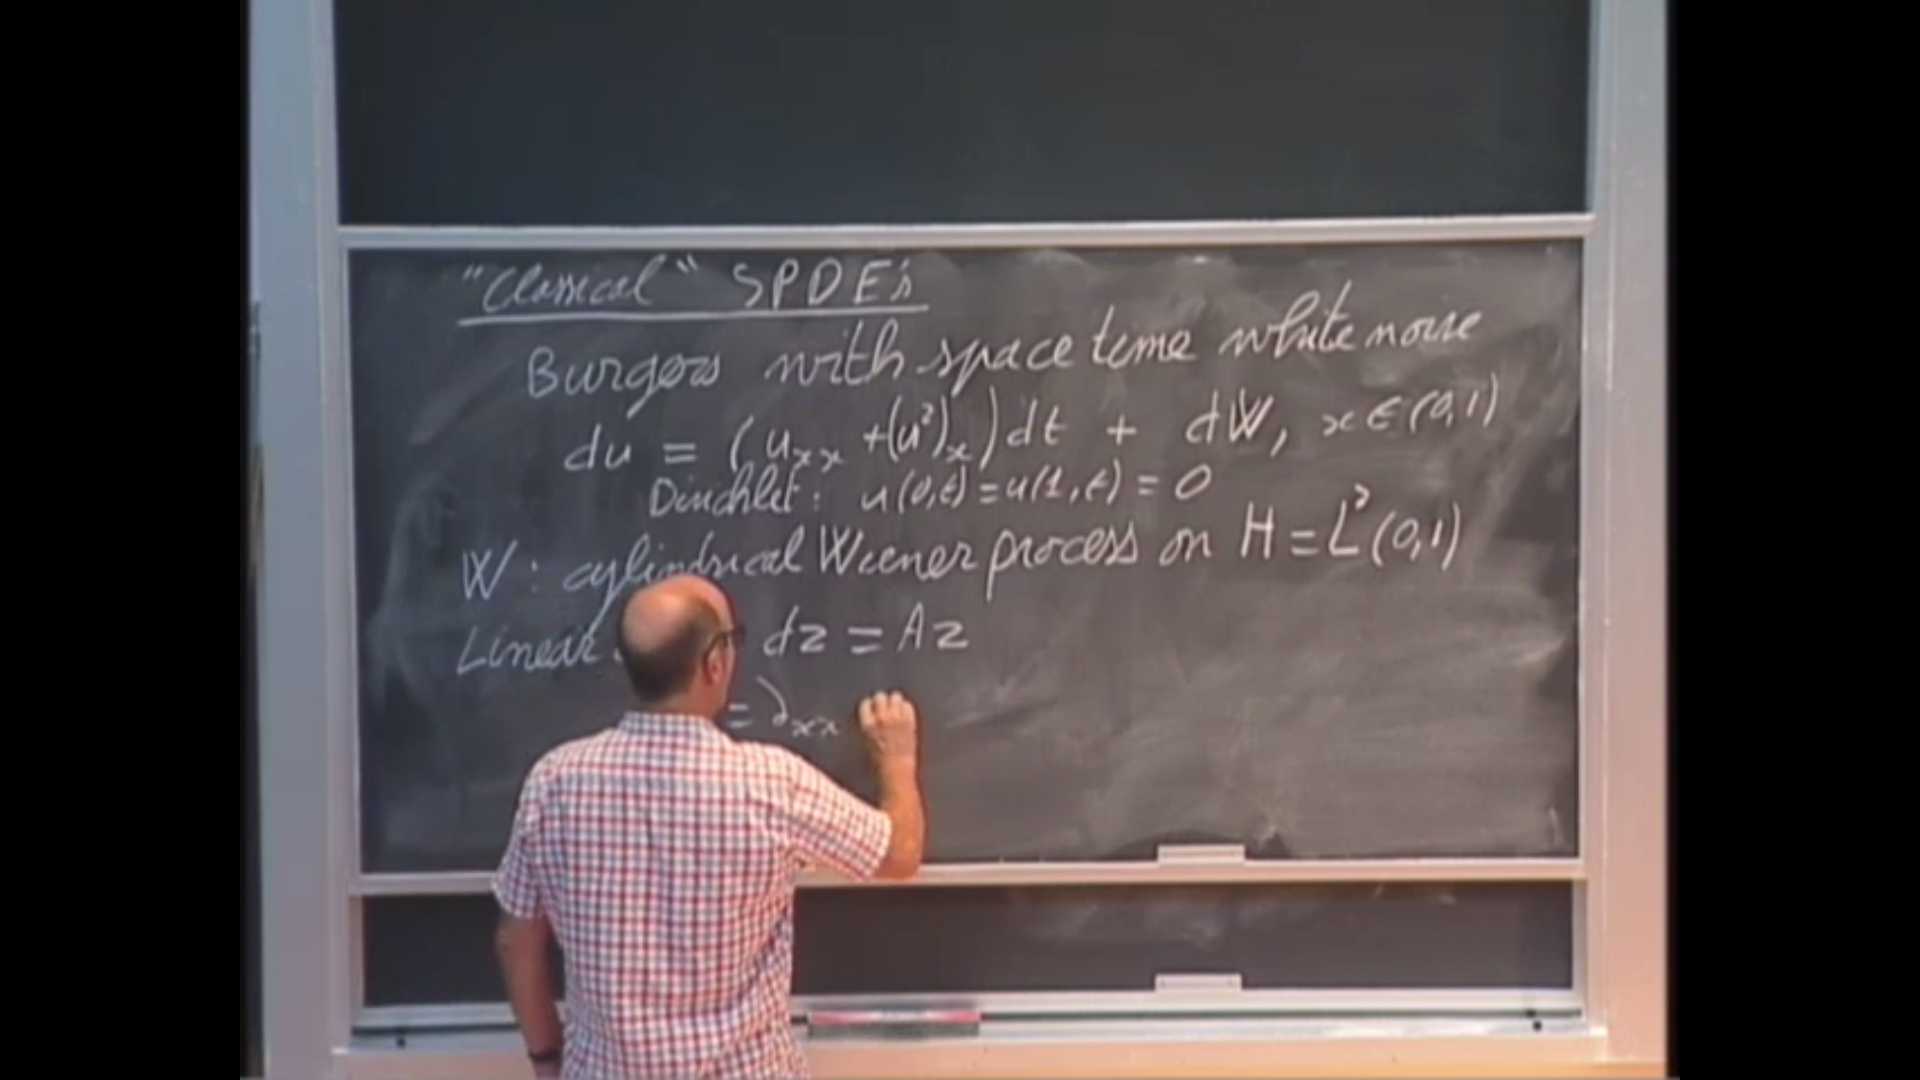 "Classical" SPDE's
Burgers with space time white noise
du = (u_xx + (u²)_x) dt + dW, x ∈ (0,1)
Dirichlet: u(0,t) = u(1,t) = 0
W: cylindrical Wiener process on H = L²(0,1)
Linear dz = Az
= ∂_xx